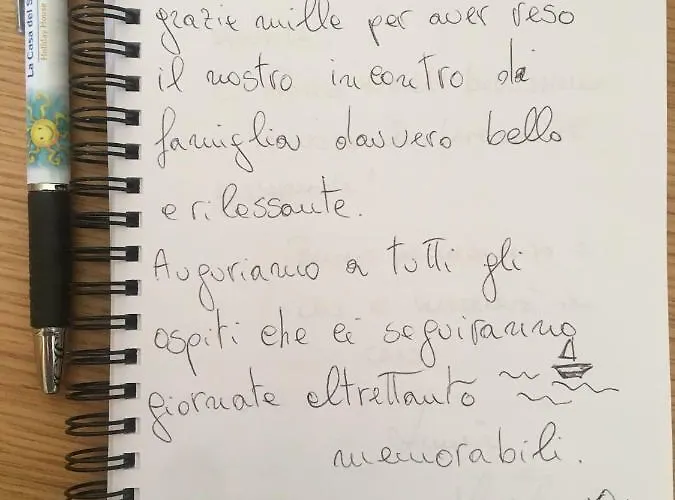 La Casa del S
Holiday House
grazie mille per aver reso
il nostro incontro di
famiglia davvero bello
e rilassante.
Auguriamo a tutti gli
ospiti che ci seguiranno
giornate altrettanto
memorabili.